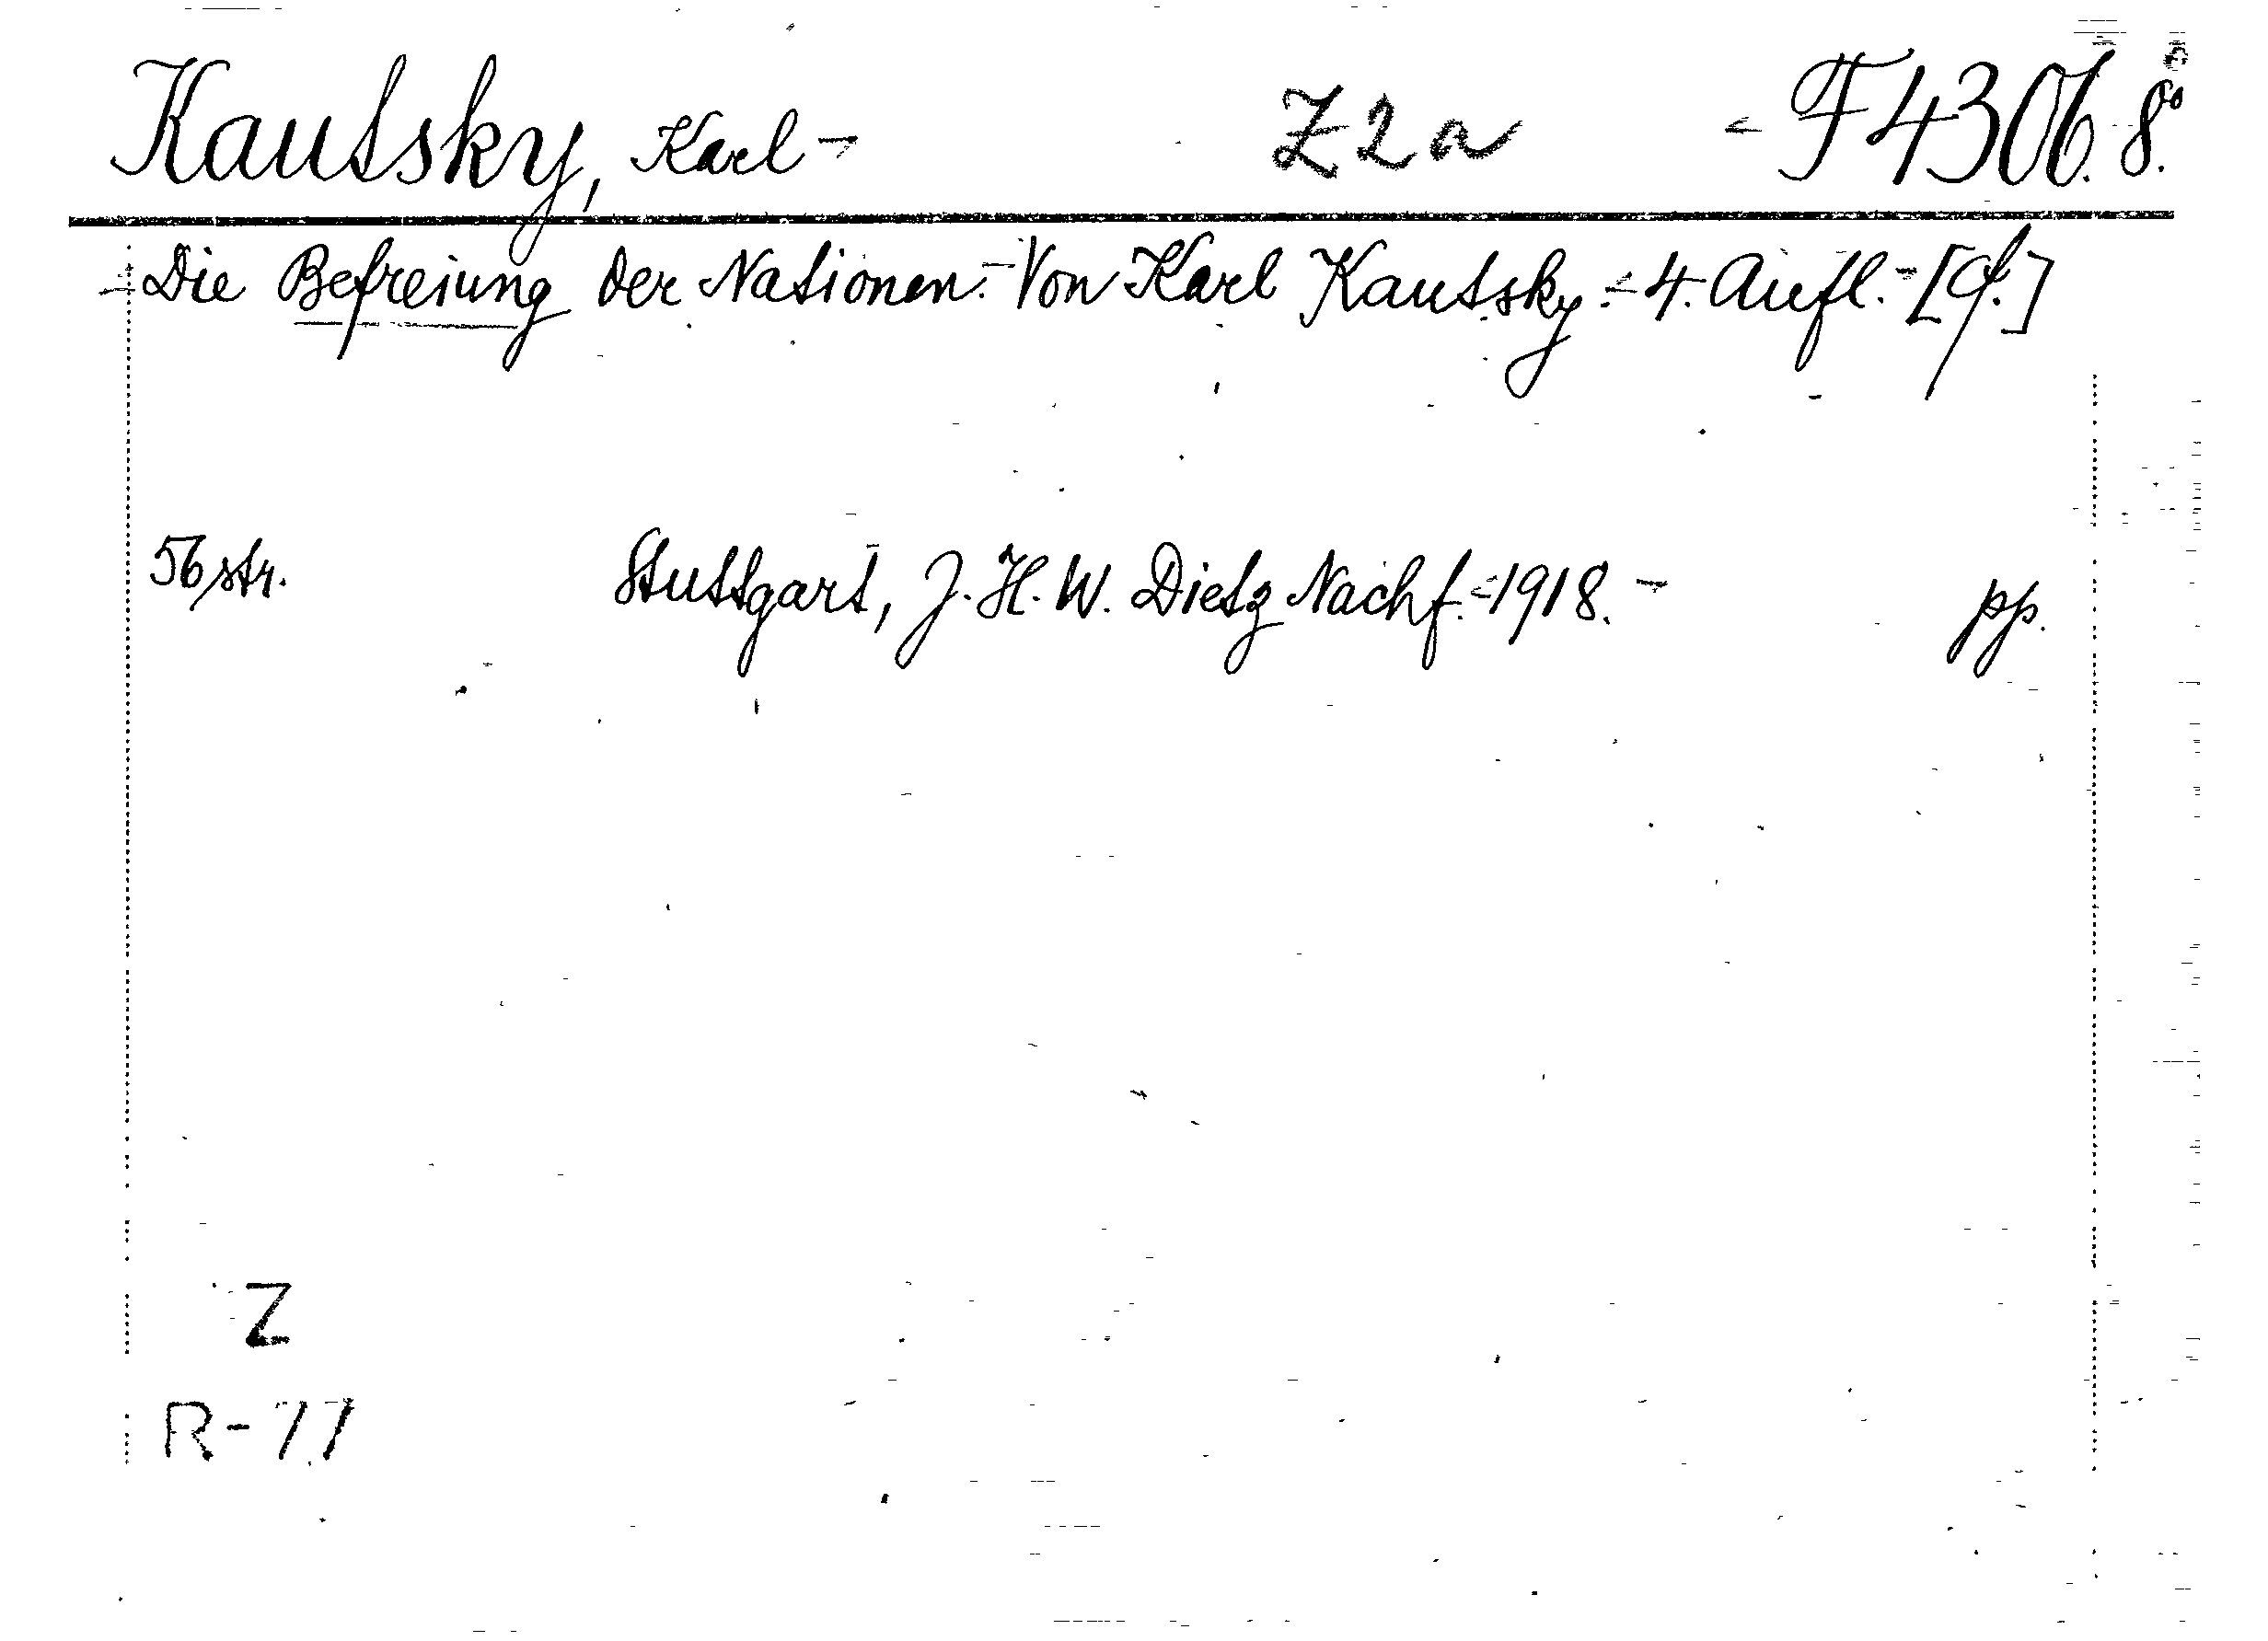 Kautsky, Karl - Z2a - F 4306. 8°.
- Die Befreiung der Nationen. - Von Karl Kautsky. - 4. Aufl. -
56 str. Stuttgart, J. H. W. Dietz Nachf. - 1918. - pp.
Z
R-77